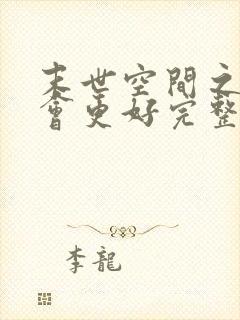 末世空間之
會更好完整
李龍